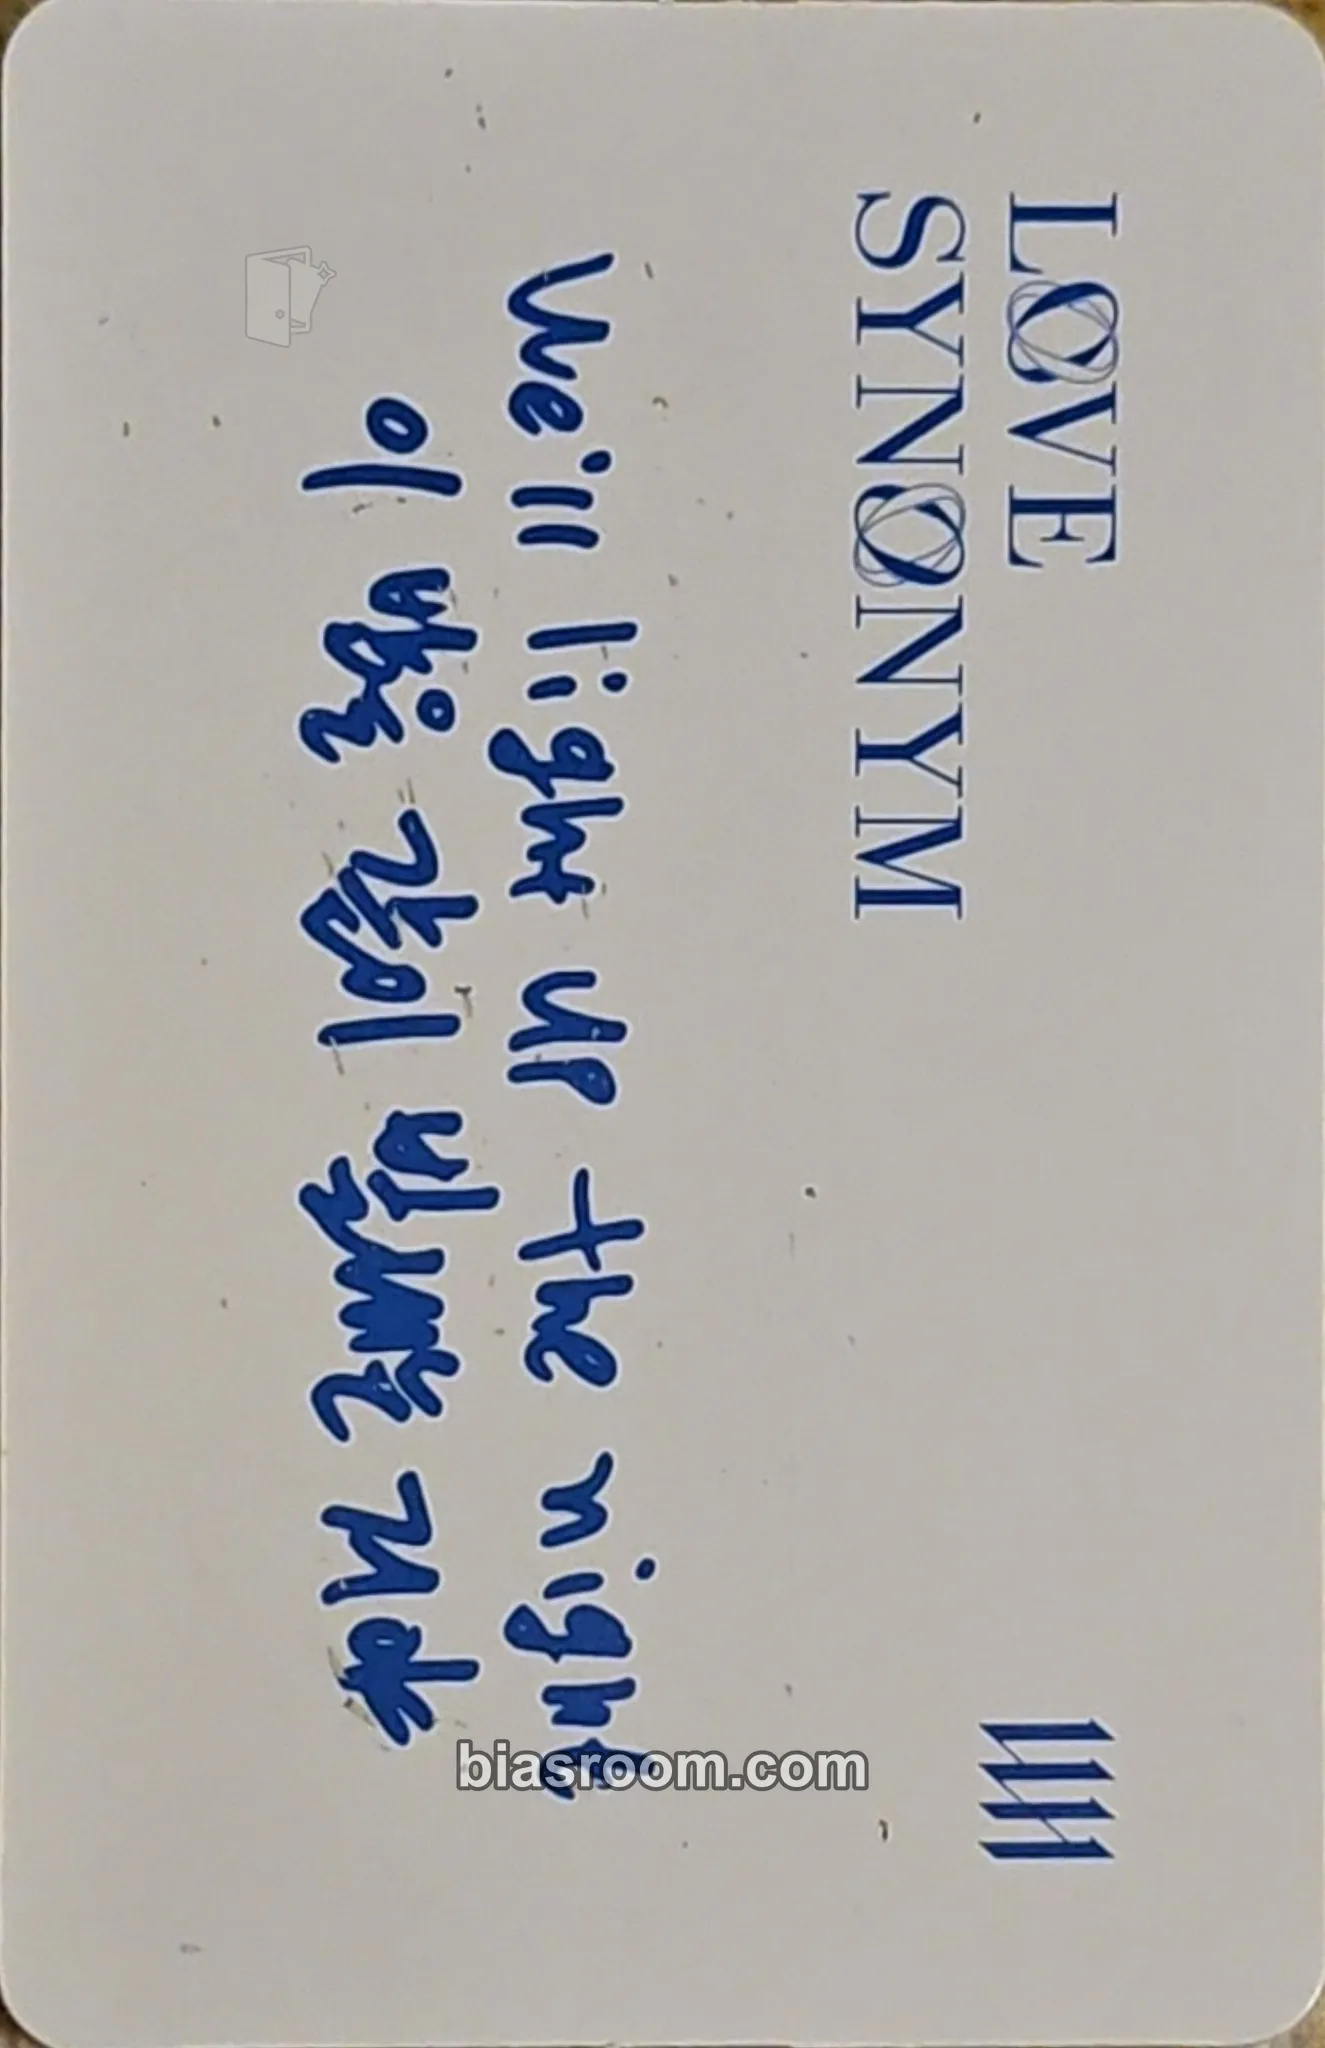 LOVE
SYNONYM
We'll light up the night
이 밤을 같이 밝혀줄 거야
biasroom.com